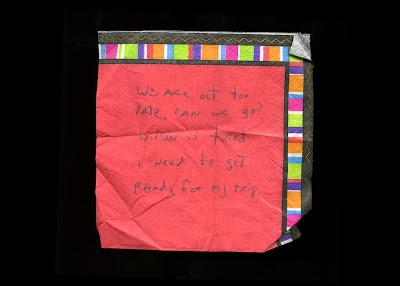 We Are out too
late. CAN we go?
Wilson is tired
I need to get
Ready for my trip